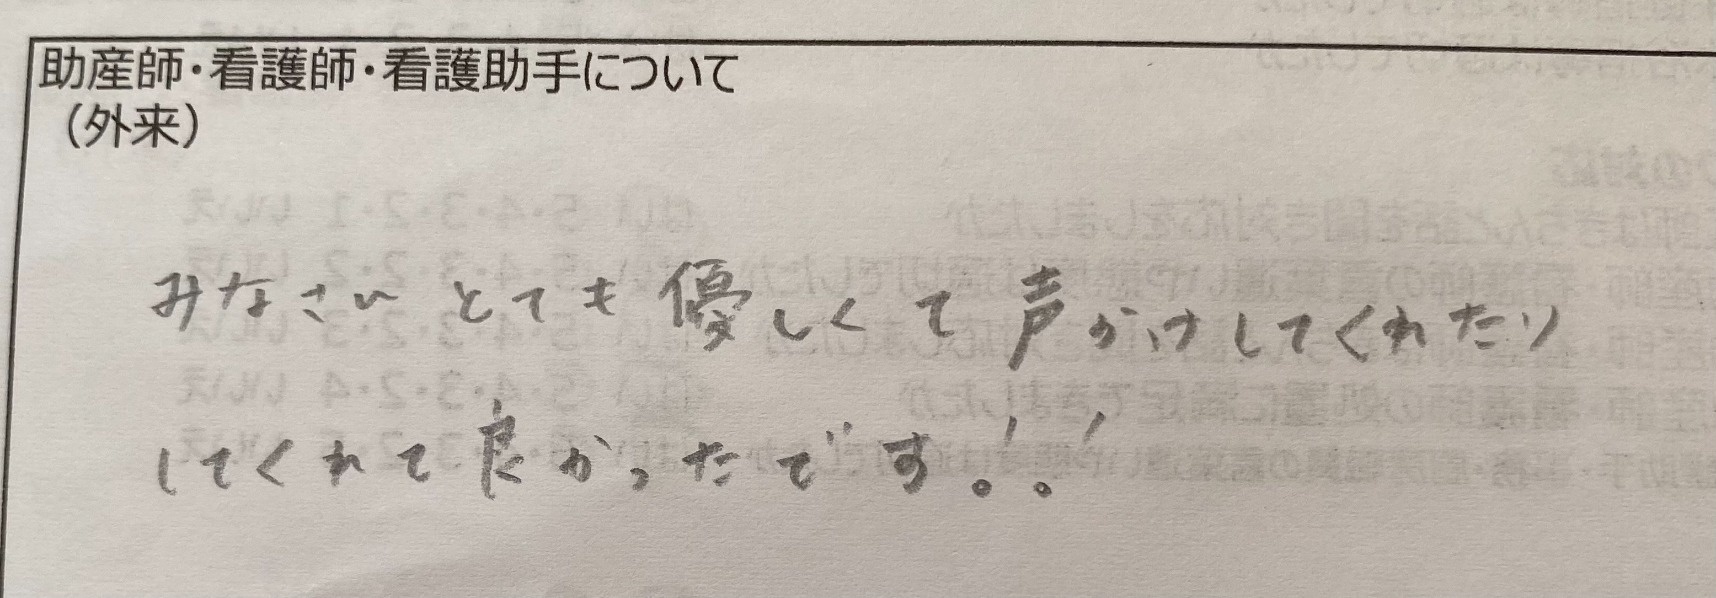 助産師・看護師・看護助手について
（外来）
みなさい とても優しくて声かけしてくれたり
してくれて良かったです！！